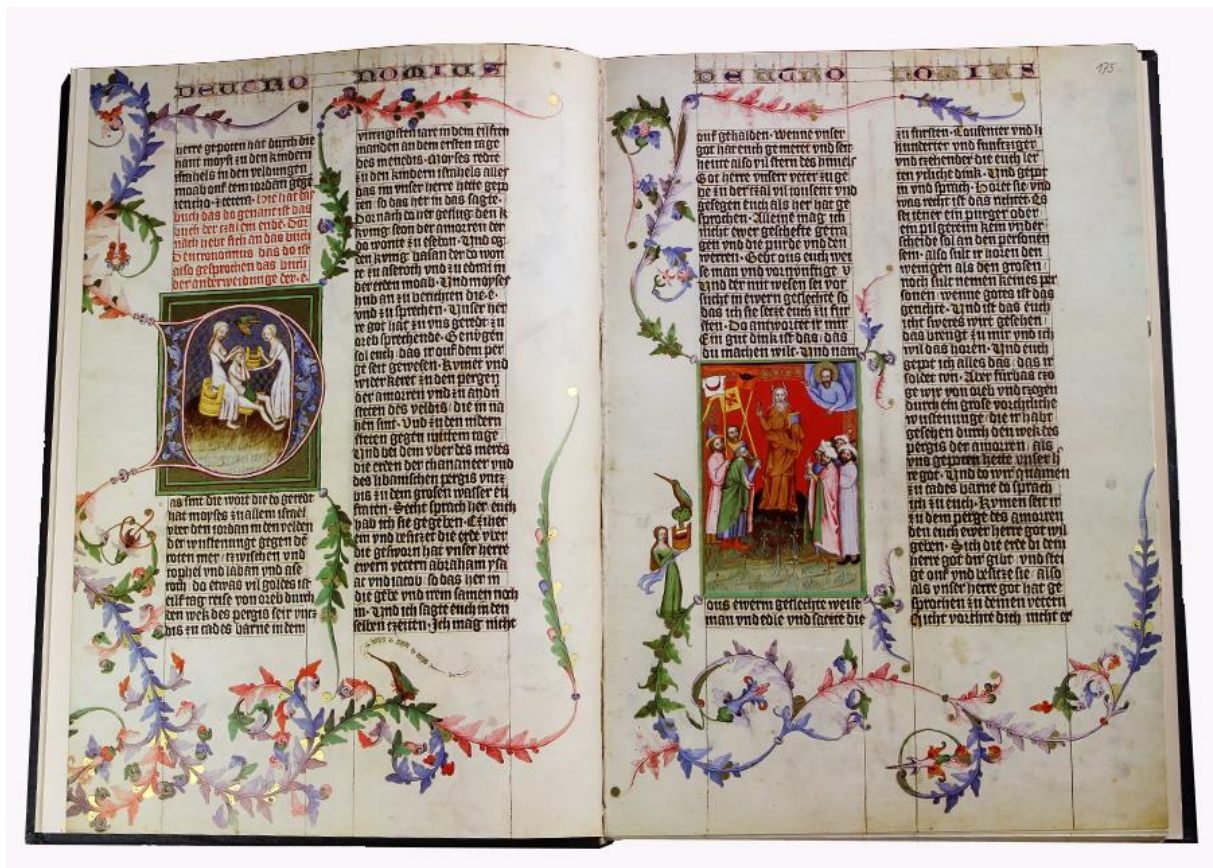 DEUTRO NOMIUS
herre geporen hat durch die
hant moysi zu den kindern
israhels in den veldungen
moab ouf dem iordan gege
iericho · Hie hat das
buch das do genant ist das
buch der czal ein ende · Dor
nach hebt sich an das buch
Deutronomius das do ist
also gesprochen das buch
der anderweidunge der · e ·
Das sint die wort die do geredt
hat moyses zu allem israhel
vber den iordan in den velden
der wustenunge gegen de
roten mer · zwischen vnd
tophel vnd laban vnd ase
roth · do etwas vil goldes ist
eilf tag reise von oreb durch
den wek des pergis seir vncz
bis zu cades barne in dem
virczigsten iare in dem eilften
manden an dem ersten tage
des menedis · Moyses redte
zu den kindern israhels alles
das im vnser herre hette gepo
ten · so das her in das sagte ·
Dornach do er geslug den k
vnig seon der amorren der
do wonte zu esebon · Vnd og
den kvnig basan der do won
te zu aseroth vnd zu edrai in
der erden moab · Vnd moyses
hub an zu berichten die · e ·
vnd zu sprechen · Vnser her
re got hat zu vns geredt zu
oreb sprechende · Genvgen
sol euch · das ir ouf dem per
ge seit gewesen · Kvmet vnd
wider keret zu den pergen
der amorren vnd zu andn
steten des veldis · die in na
hen sint · Vnd zu den nidern
steten gegen mittem tage
Vnd bei dem vber des meres
die erden der chananeer vnd
des libanischen pergis vncz
bis zu dem grosen wasser eu
fraten · Secht sprach her euch
hab ich sie gegeben · Czihet
ein vnd besiczet die erde vber
die gesworn hat vnser herre
ewern vetern abraham ysa
ac vnd iacob · so das her in
die gebe vnd irem samen noch
in · Vnd ich sagte euch in den
selben czeiten · Ich mag nicht
DEUTRO NOMIUS
175
ouf gehalden · wenne vnser
got hat euch gemeret vnd seit
heute also vil stern des himels
Got herre vnser veter zu ge
be zu der czal vil tousent vnd
gesegen euch als her hat ge
sprochen · Alleine mag ich
nicht ewer geschefte getra
gen vnd die purde vnd den
werren · Gebt ous euch wei
se man vnd vornunftige v
vnd der mit wesen sei vor
sucht in ewern geslechte so
das ich sie secze euch zu fur
sten · Do antwortet ir mir
Ein gut dink ist das · das
du machen wilt · Vnd nam
ous ewerm geslechte weise
man vnd edle vnd saczte die
zu fursten · Tousenter vnd h
hunderter vnd funfcziger
vnd czehender die euch ler
ten ycliche dink · Vnd gepot
in vnd sprach · Horet sie vnd
was recht ist das richtet · Es
sei iener ein purger oder
ein pilgereim kein vnder
scheide sol an den personen
sein · also sult ir horen den
wenigen als den grosen /
noch sult nemen keines per
sonen · wenne gotes ist das
gerichte · Vnd ist das euch
icht sweres wirt gesehen /
das brengt zu mir vnd ich
wil das horen · Vnd euch
gepot ich alles das · das ir
soldet tvn · Aber furbas czo
ge wir von oreb vnd czogen
durch ein grose vorchtliche
wustenunge · die ir habt
gesehen durch den wek des
pergis der amorren · als
vns gepoten hette vnser h
re got · Vnd do wir quamen
zu cades barne do sprach
ich zu euch · Kvmen seit ir
zu dem perge des amorren
den euch ewer herre got wil
geben · Sich die erde di dein
herre got dir gibt · vnd stei
ge ouf vnd besicze sie · also
als vnser herre got hat ge
sprochen zu deinen vetern
Nicht vorchte dich nicht er